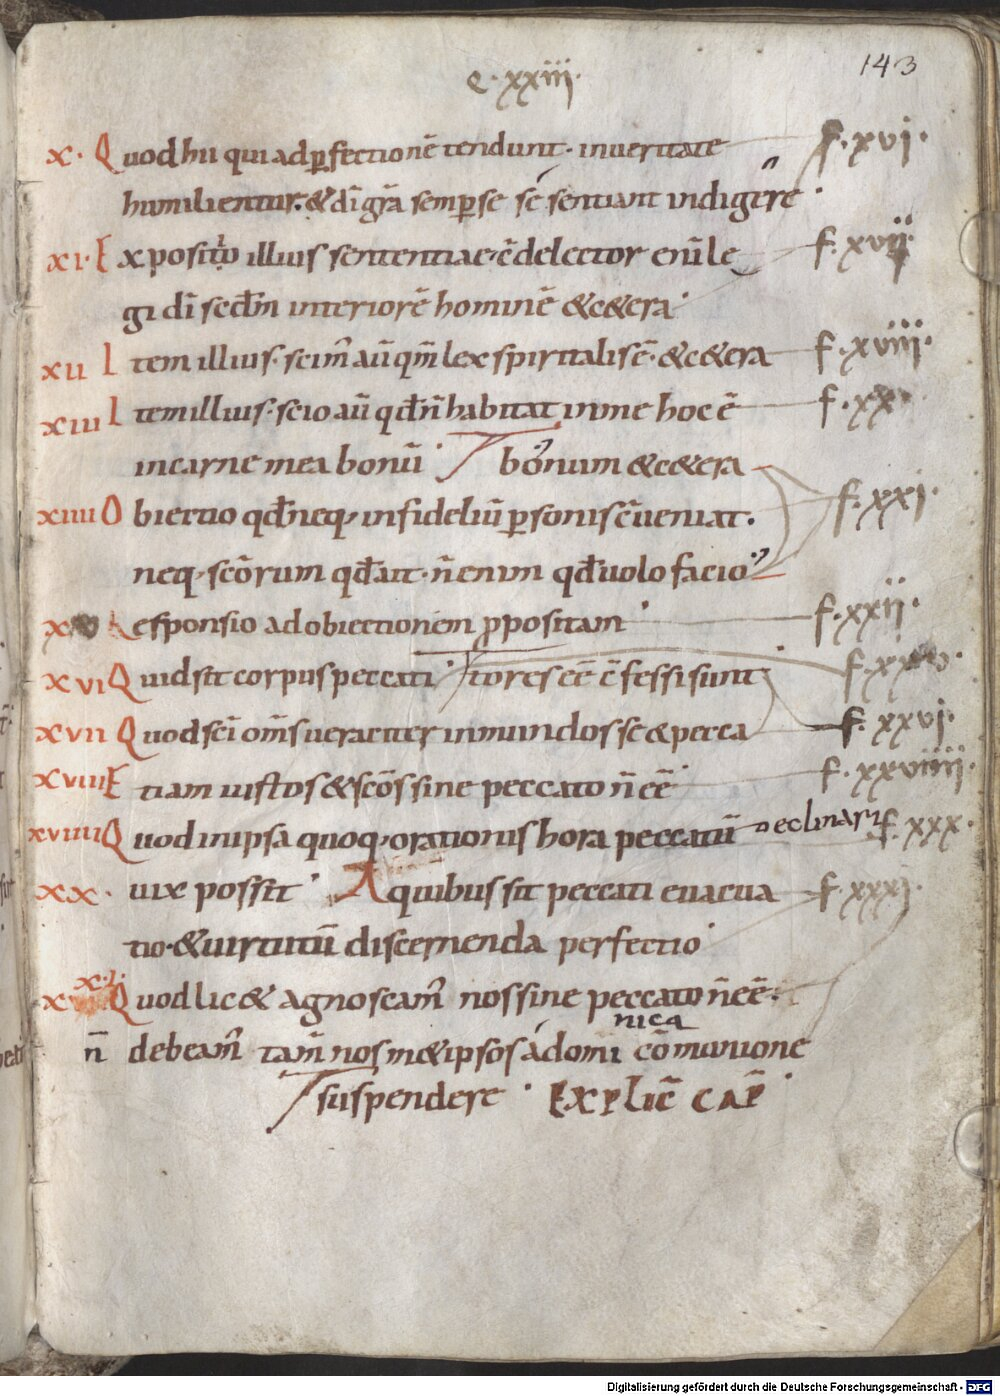 143
e·xxiii·
x· Quod hii qui ad ꝑfectionē tendunt· in ueritate f·xvi·
humilientur· & dī grā semꝑ se sē sentiant indigere·
xi· Expositio illius sententiae· c̄delector enī le f·xvii·
gi dī scdm̄ interiorē hominē & c&era·
xii Item illius· scim̄ aū qm̄ lex spiritalis ē· & c&era f·xviii·
xiii Item illius· scio aū qđ n̄ habitat in me hoc ē f·xx
in carne mea bonū· bonum & c&era
xiiii Obiectio qđ neq; infideliū ꝑsonis c̄ueniat· f·xxi·
neq; scōrum qđ ait· n̄ enim qđ uolo facio
xv Responsio ad obiectionem ꝓpositam· f·xxii·
xvi Quid sit corpus peccati· tores eē c̄fessi sunt f·xx
xvii Quod scī om̄s ueraciter inmundos se & pecca f·xxvi·
xviii Etiam iustos & scōs sine peccato n̄ eē· f·xxviiii·
xviiii Quod in ipsa quoq; orationis hora peccatū declinari f·xxx·
xx· uix possit· A quibus sit peccati euacua f·xxxi·
tio· & uirtutū discernenda perfectio·
xxi· Quod lic& agnoscam̄ nos sine peccato n̄ eē·
n̄ debeam̄ tam̄ nosm&ipsos a domi nica cōmunione
suspendere· Explic̄ cap̄·
Digitalisierung gefördert durch die Deutsche Forschungsgemeinschaft - DFG